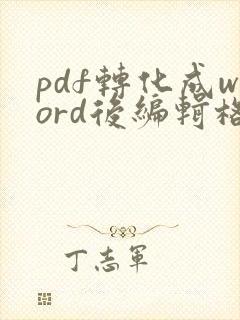 pdf轉化成w
ord後編輯格
丁志軍